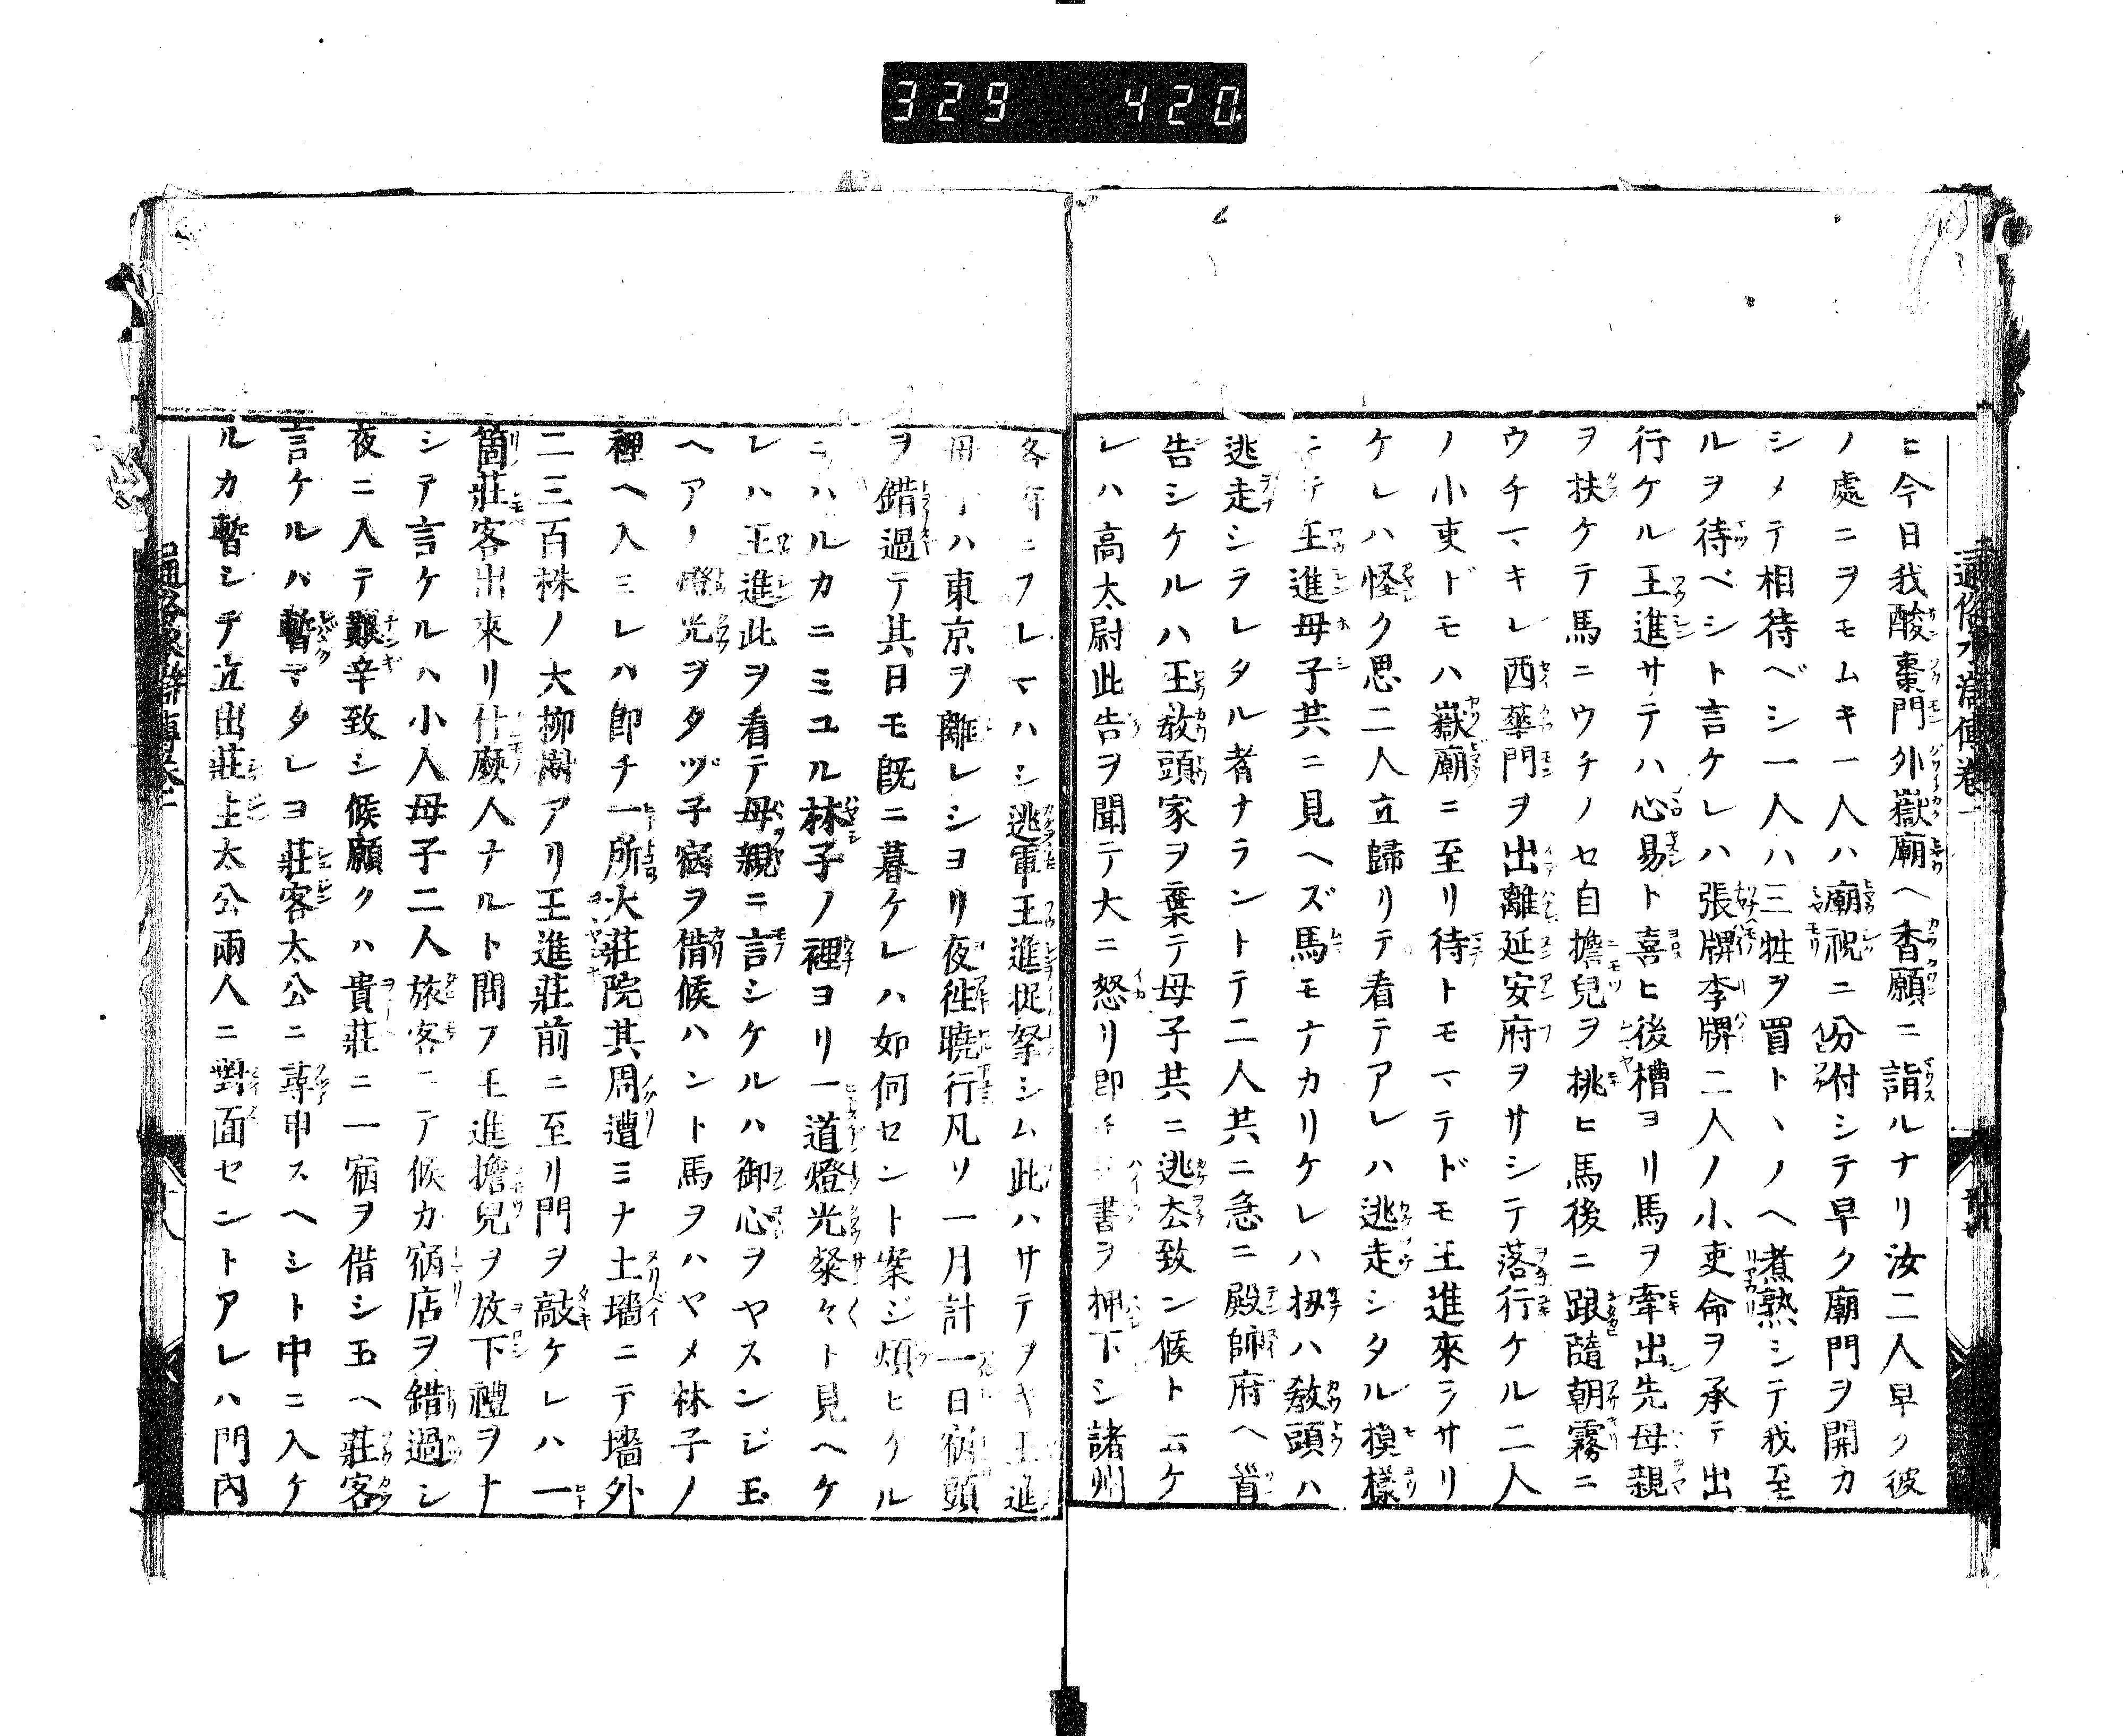 329 420
通俗水滸傳卷一
ヒ今日我酸棗門外嶽廟ヘ香願ニ詣ルナリ汝二人早ク彼
ノ處ニヲモムキ一人ハ廟祝ニ分付シテ早ク廟門ヲ開カ
シメテ相待ベシ一人ハ三牲ヲ買トヽノヘ煮熟シテ我至
ルヲ待ベシト言ケレハ張牌李牌二人ノ小吏命ヲ承テ出
行ケル王進サテハ心易ト喜ヒ後槽ヨリ馬ヲ牽出シ先母親
ヲ扶ケテ馬ニウチノセ自擔兒ヲ挑ヒ馬後ニ跟隨朝霧ニ
ウチマキレ西華門ヲ出離延安府ヲサシテ落行ケル二人
ノ小吏ドモハ嶽廟ニ至リ待トモマテドモ王進來ラサリ
ケレハ怪ク思二人立歸リテ看テアレハ逃走シタル摸樣
ニテ王進母子共ニ見ヘズ馬モナカリケレハ扨ハ教頭ハ
逃走シラレタル者ナラントテ二人共ニ急ニ殿帥府ヘ首
告シケルハ王教頭家ヲ棄テ母子共ニ逃去致ン候ト云ケ
レハ高太尉此告ヲ聞テ大ニ怒リ即チ 書ヲ押下シ諸州
各 ニフレマハシ逃軍王進捉拏シム此ハサテヲキ王進
母 ハ東京ヲ離レシヨリ夜往曉行凡ソ一月計一日宿頭
ヲ錯過テ其日モ既ニ暮ケレハ如何セント案ジ煩ヒケル
ニハルカニミユル林子ノ裡ヨリ一道燈光粲々ト見ヘケ
レハ王進此ヲ看テ母親ニ言シケルハ御心ヲヤスンジ玉
ヘアノ燈光ヲタヅ子宿ヲ借候ハント馬ヲハヤメ林子ノ
裡ヘ入ミレハ即チ一所大莊院其周遭ミナ土墻ニテ墻外
二三百株ノ大柳樹アリ王進莊前ニ至リ門ヲ敲ケレハ一
箇莊客出來リ什麼人ナルト問フ王進擔兒ヲ放下禮ヲナ
シテ言ケルハ小人母子二人旅客ニテ候カ宿店ヲ錯過シ
夜ニ入テ艱辛致シ候願クハ貴莊ニ一宿ヲ借シ玉ヘ莊客
言ケルハ暫マタレヨ莊客太公ニ尋申スヘシト中ニ入ケ
ルカ暫シテ立出莊主太公兩人ニ對面セントアレハ門內